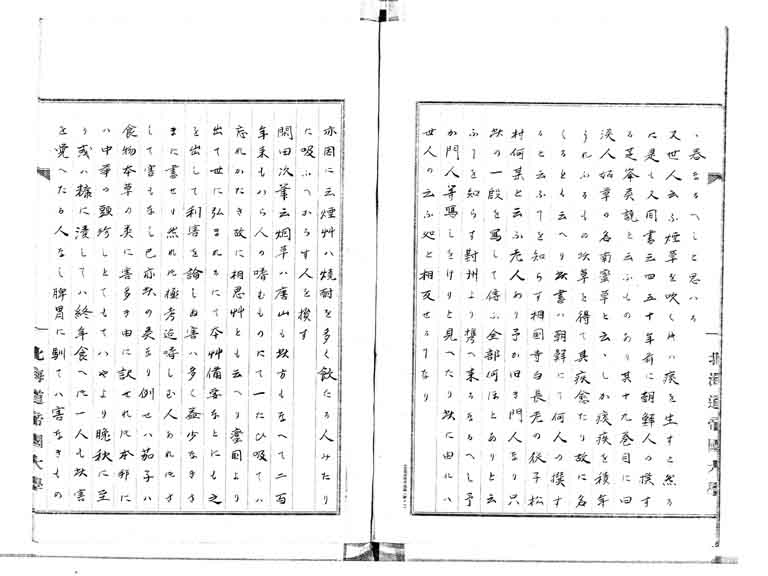 呑なるへしと思ハる
又世人云ふ煙草を吹く時ハ痰を生すと然る
に是も又同書三四五十年前に朝鮮人の撰す
る芝峯類説と云ふものあり其十九巻目に曰
淡人始草の名南蛮草と云、しか痰疾を積年
うれふるもの此草を得て其疾愈たり故に名
くるとも云へり此書ハ朝鮮にて何人の撰す
ると云ふ事を知らす相国寺白長老の従子松
村何某と云ふ老人あり予か旧き門人なり只
此の一段を写して伝ふ全部何ほとありと云
ふ事を知らす対州より携へ来るなるへし予
か門人等写しをけりと見へたり此に由にハ
世人の云ふ処と相反せるなり
北海道帝國大學
亦因に云煙艸ハ焼酎を多く飲たる人みたり
に吸ふへからす人を損す
閑田次筆云烟草ハ唐山も此方もなへて二百
年来ものから人の嗜むものにて一たひ吸てハ
忘れかたき故に相思艸とも云へり蛮国より
出て世に弘まれるにて本艸備要なとにも之
を出して利害を論しぬ害ハ多く益少なきさ
まに書せり然れ共極老迄嗜しむ人あれ共さ
して害もなし已亦此の類なり例せハ茄子ハ
食物本草の類に害多き由に訳されれ共本邦に
ハ中華の頭珍しとてもてはやより晩秋に至
り或ハ糠に漬してハ終年食へ共一人も此害
を覚へたる人なし脾胃に馴てハ害なきもの
北海道帝國大學